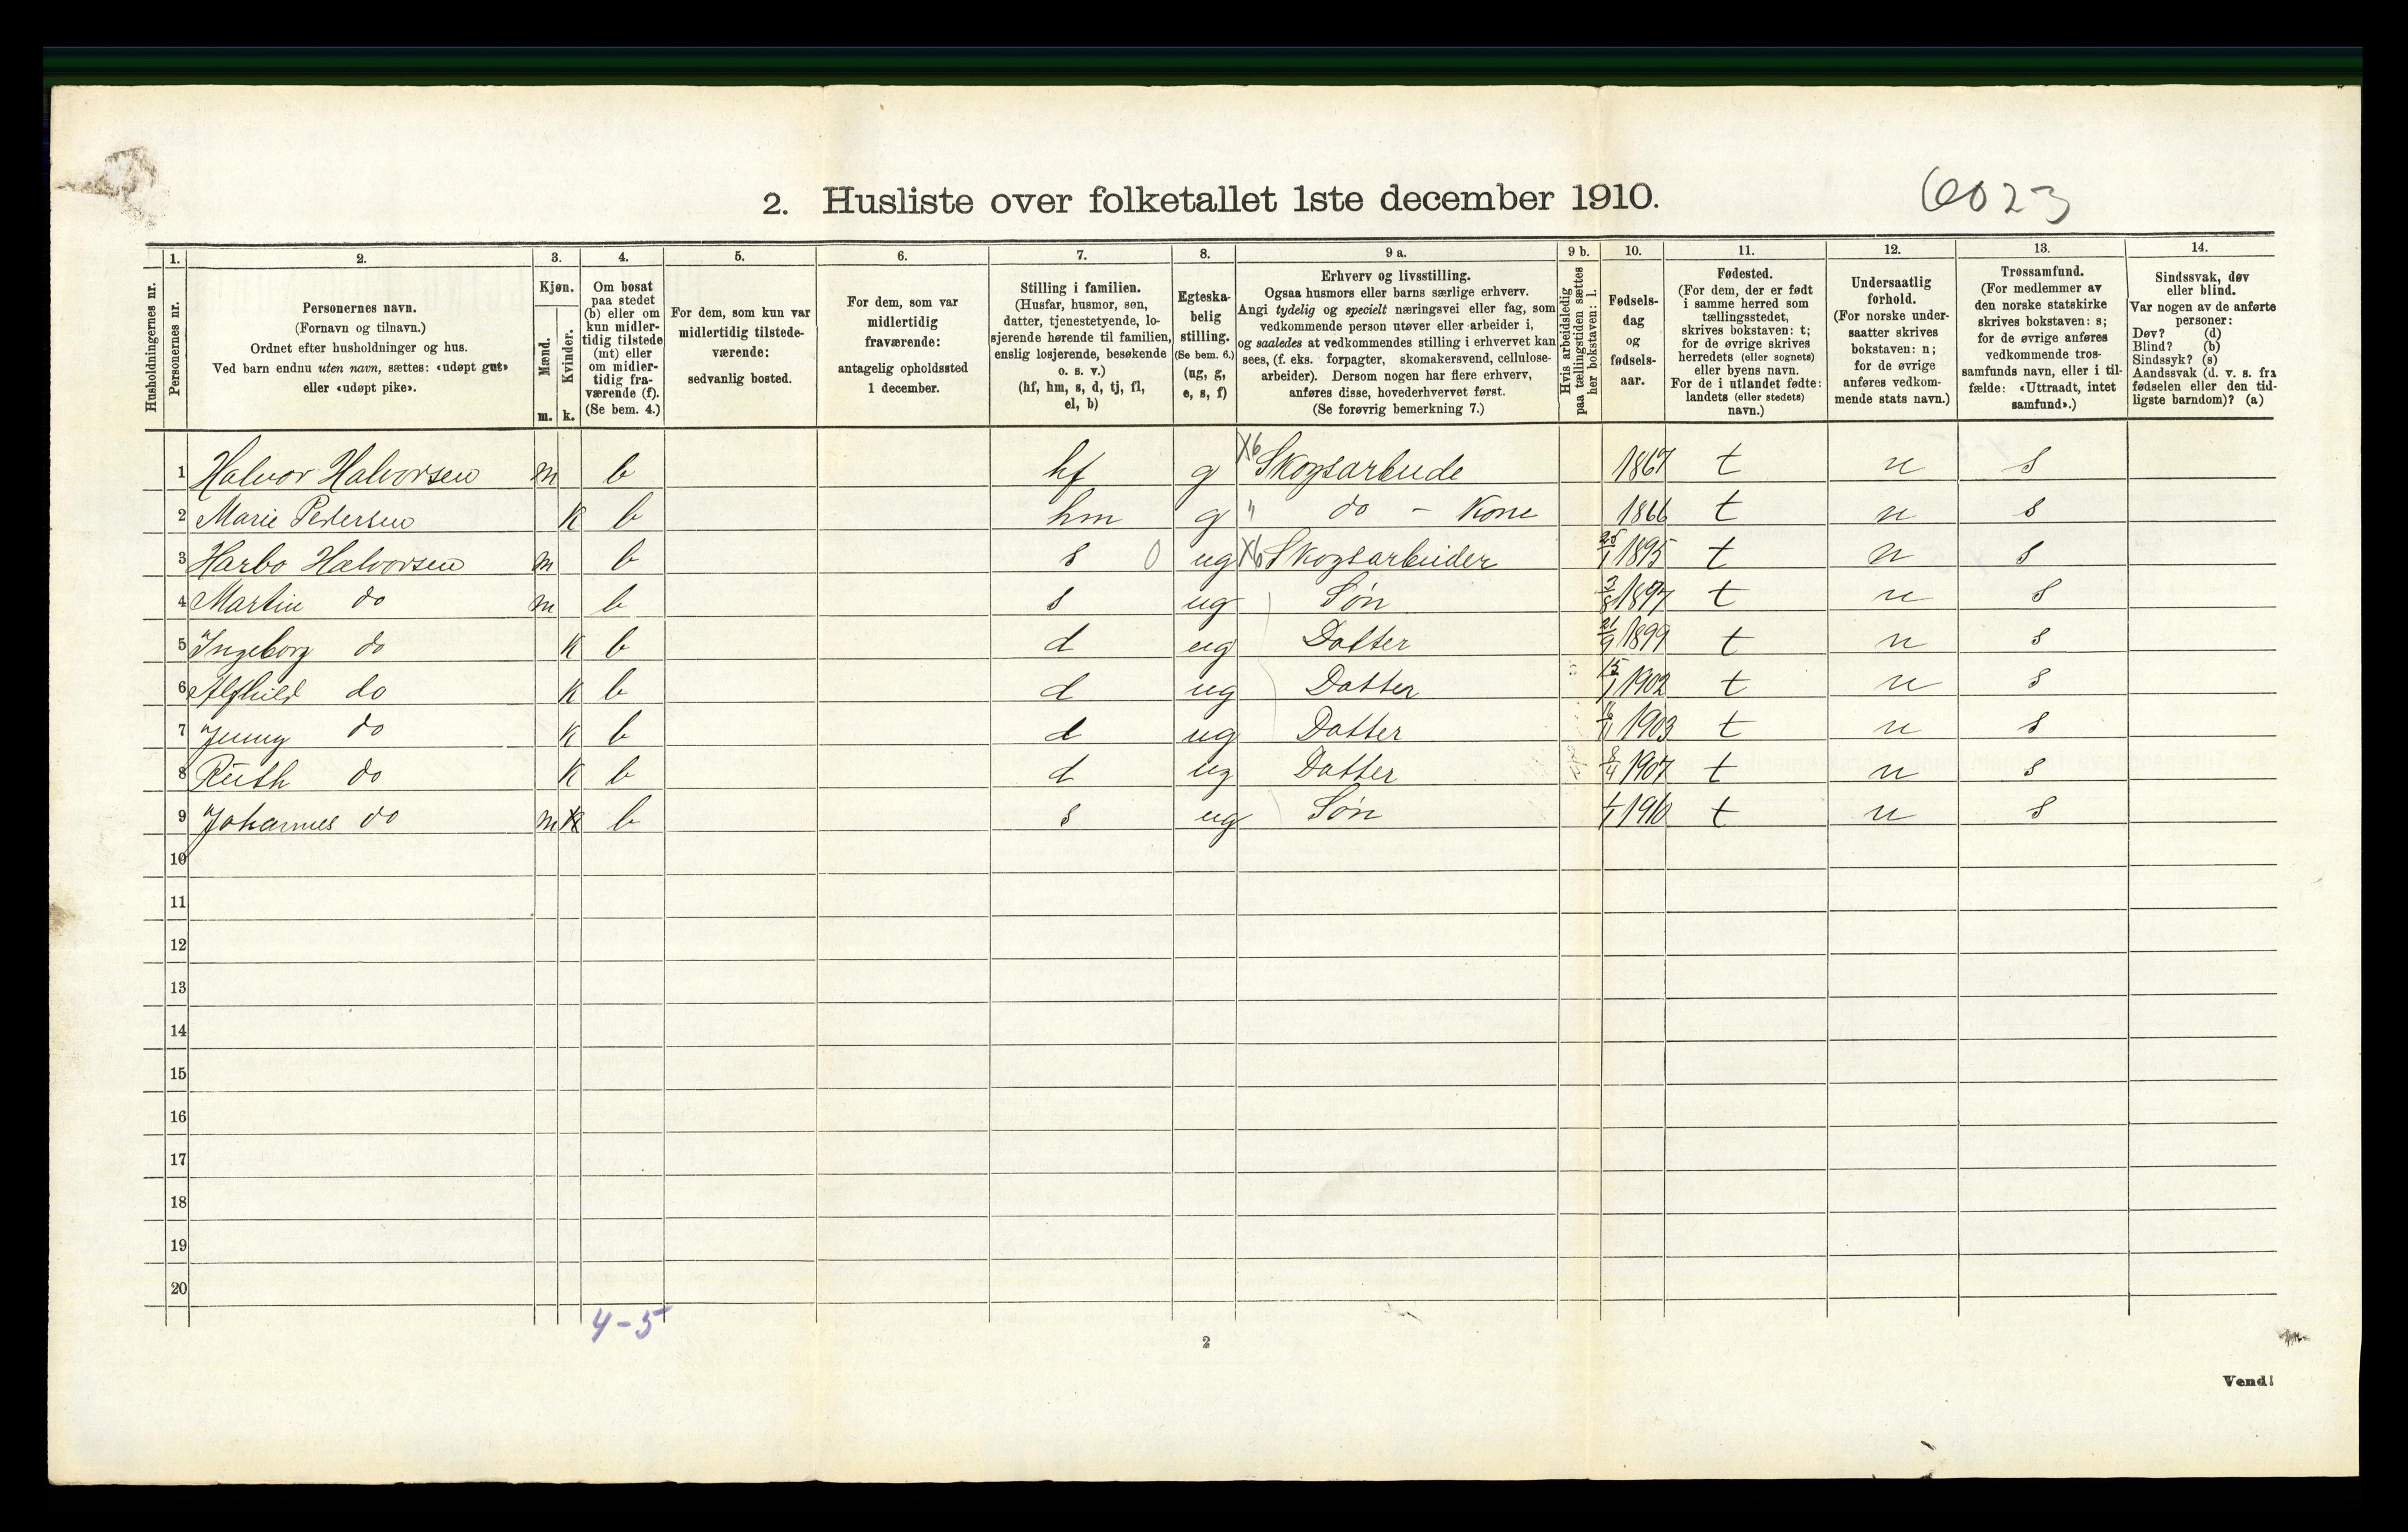 2. Husliste over folketallet 1ste december 1910.
6023
Husholdningernes nr.
1. Personernes nr.
2. Personernes navn.
(Fornavn og tilnavn.)
Ordnet efter husholdninger og hus.
Ved barn endnu uten navn, sættes: «udøpt gut»
eller «udøpt pike».
3. Kjøn.
Mænd. m.
Kvinder. k.
4. Om bosat
paa stedet
(b) eller om
kun midler-
tidig tilstede
(mt) eller
om midler-
tidig fra-
værende (f).
(Se bem. 4.)
5. For dem, som kun var
midlertidig tilstede-
værende:
sedvanlig bosted.
6. For dem, som var
midlertidig
fraværende:
antagelig opholdssted
1 december.
7. Stilling i familien.
(Husfar, husmor, søn,
datter, tjenestetyende, lo-
sjerende hørende til familien,
enslig losjerende, besøkende
o. s. v.)
(hf, hm, s, d, tj, fl,
el, b)
8. Egteska-
belig
stilling.
(Se bem. 6.)
(ug, g,
e, s, f)
9 a. Erhverv og livsstilling.
Ogsaa husmors eller barns særlige erhverv.
Angi tydelig og specielt næringsvei eller fag, som
vedkommende person utøver eller arbeider i,
og saaledes at vedkommendes stilling i erhvervet kan
sees, (f. eks. forpagter, skomakersvend, cellulose-
arbeider). Dersom nogen har flere erhverv,
anføres disse, hovederhvervet først.
(Se forøvrig bemerkning 7.)
9 b. Hvis arbeidsledig
paa tællingstiden sættes
her bokstaven: l.
10. Fødsels-
dag
og
fødsels-
aar.
11. Fødested.
(For dem, der er født
i samme herred som
tællingsstedet,
skrives bokstaven: t;
for de øvrige skrives
herredets (eller sognets)
eller byens navn.
For de i utlandet fødte:
landets (eller stedets)
navn.)
12. Undersaatlig
forhold.
(For norske under-
saatter skrives
bokstaven: n;
for de øvrige
anføres vedkom-
mende stats navn.)
13. Trossamfund.
(For medlemmer av
den norske statskirke
skrives bokstaven: s;
for de øvrige anføres
vedkommende tros-
samfunds navn, eller i til-
fælde: «Uttraadt, intet
samfund».)
14. Sindssvak, døv
eller blind.
Var nogen av de anførte
personer:
Døv? (d)
Blind? (b)
Sindssyk? (s)
Aandssvak (d. v. s. fra
fødselen eller den tid-
ligste barndom)? (a)
1 Halvor Halvorsen m b hf g X6 Skogsarbeide 1867 t n s
2 Marie Pedersen K b hm g " do - Kone 1866 t n s
3 Harbo Halvorsen m b s 0 ug X6 Skogsarbeider 25/1 1895 t n s
4 Martin do m b s ug Søn 3/8 1897 t n s
5 Ingeborg do K b d ug Datter 21/9 1899 t n s
6 Alfhild do K b d ug Datter 15/1 1902 t n s
7 Jenny do K b d ug Datter 16/11 1903 t n s
8 Ruth do K b d ug Datter 8/4 1907 t n s
9 Johannes do m K b s ug Søn 1/1 1910 t n s
10
11
12
13
14
15
16
17
18
19
20
4-5
2
Vend!